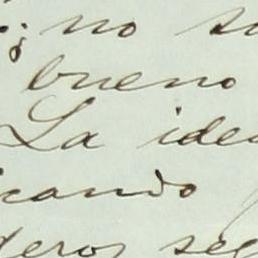 ; no so
bueno
La idea
icando
deros seg